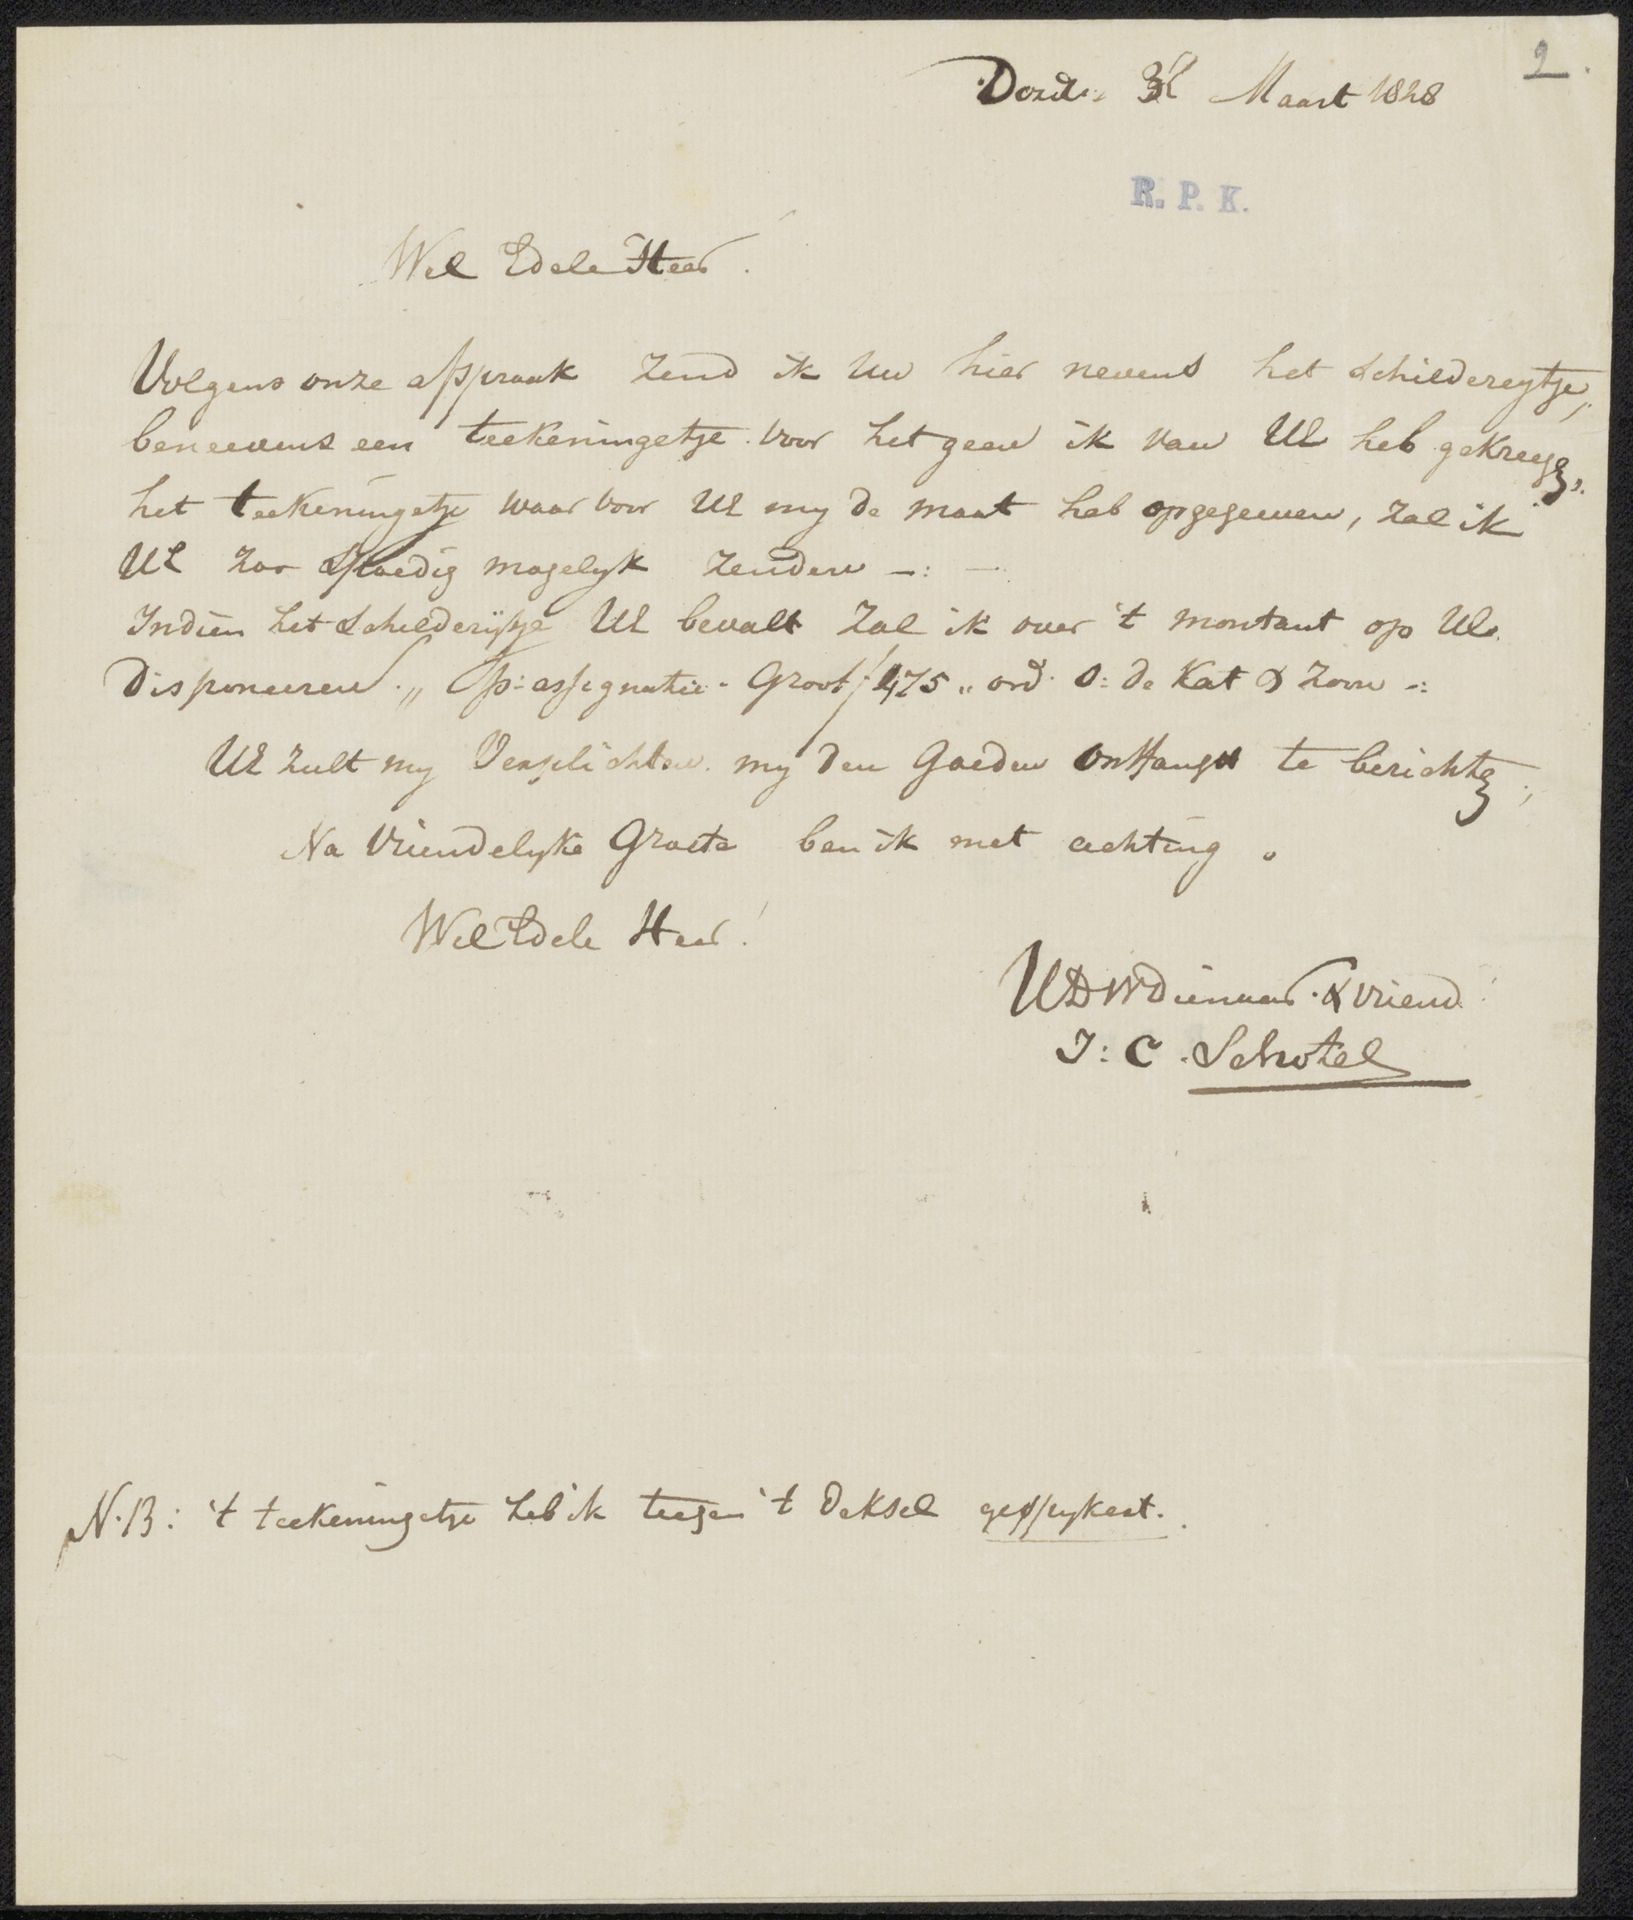 2.
Dordt. Maart 1828
R. P. K.
Wel Edele Heer!
Volgens onze afspraak zend ik Uw hier nevens het Schildereytje,
beneevens een teekeningetje voor het geen ik van UE heb gekreegen.
het teekeningetje waar voor UE my de maat heb opgegeeven, zal ik
UE zoo Spoedig mogelyk zenden —: —
Indien het Schilderijtje UE bevalt zal ik over 't montant op UE
disponeeren „ p: assignatie. Groot ƒ 475 „ ord. O: de Kat & Zoon -:
UE zult my Verplichten my den Goeden Ontfangst te berichten;
Na Vriendelyke Groete ben ik met achting.
Wel Edele Heer!
UEDWDienaar. & Vriend!
J: C. Schotel
N.B: 't teekeningetje heb ik teegen 't Deksel gespykert.